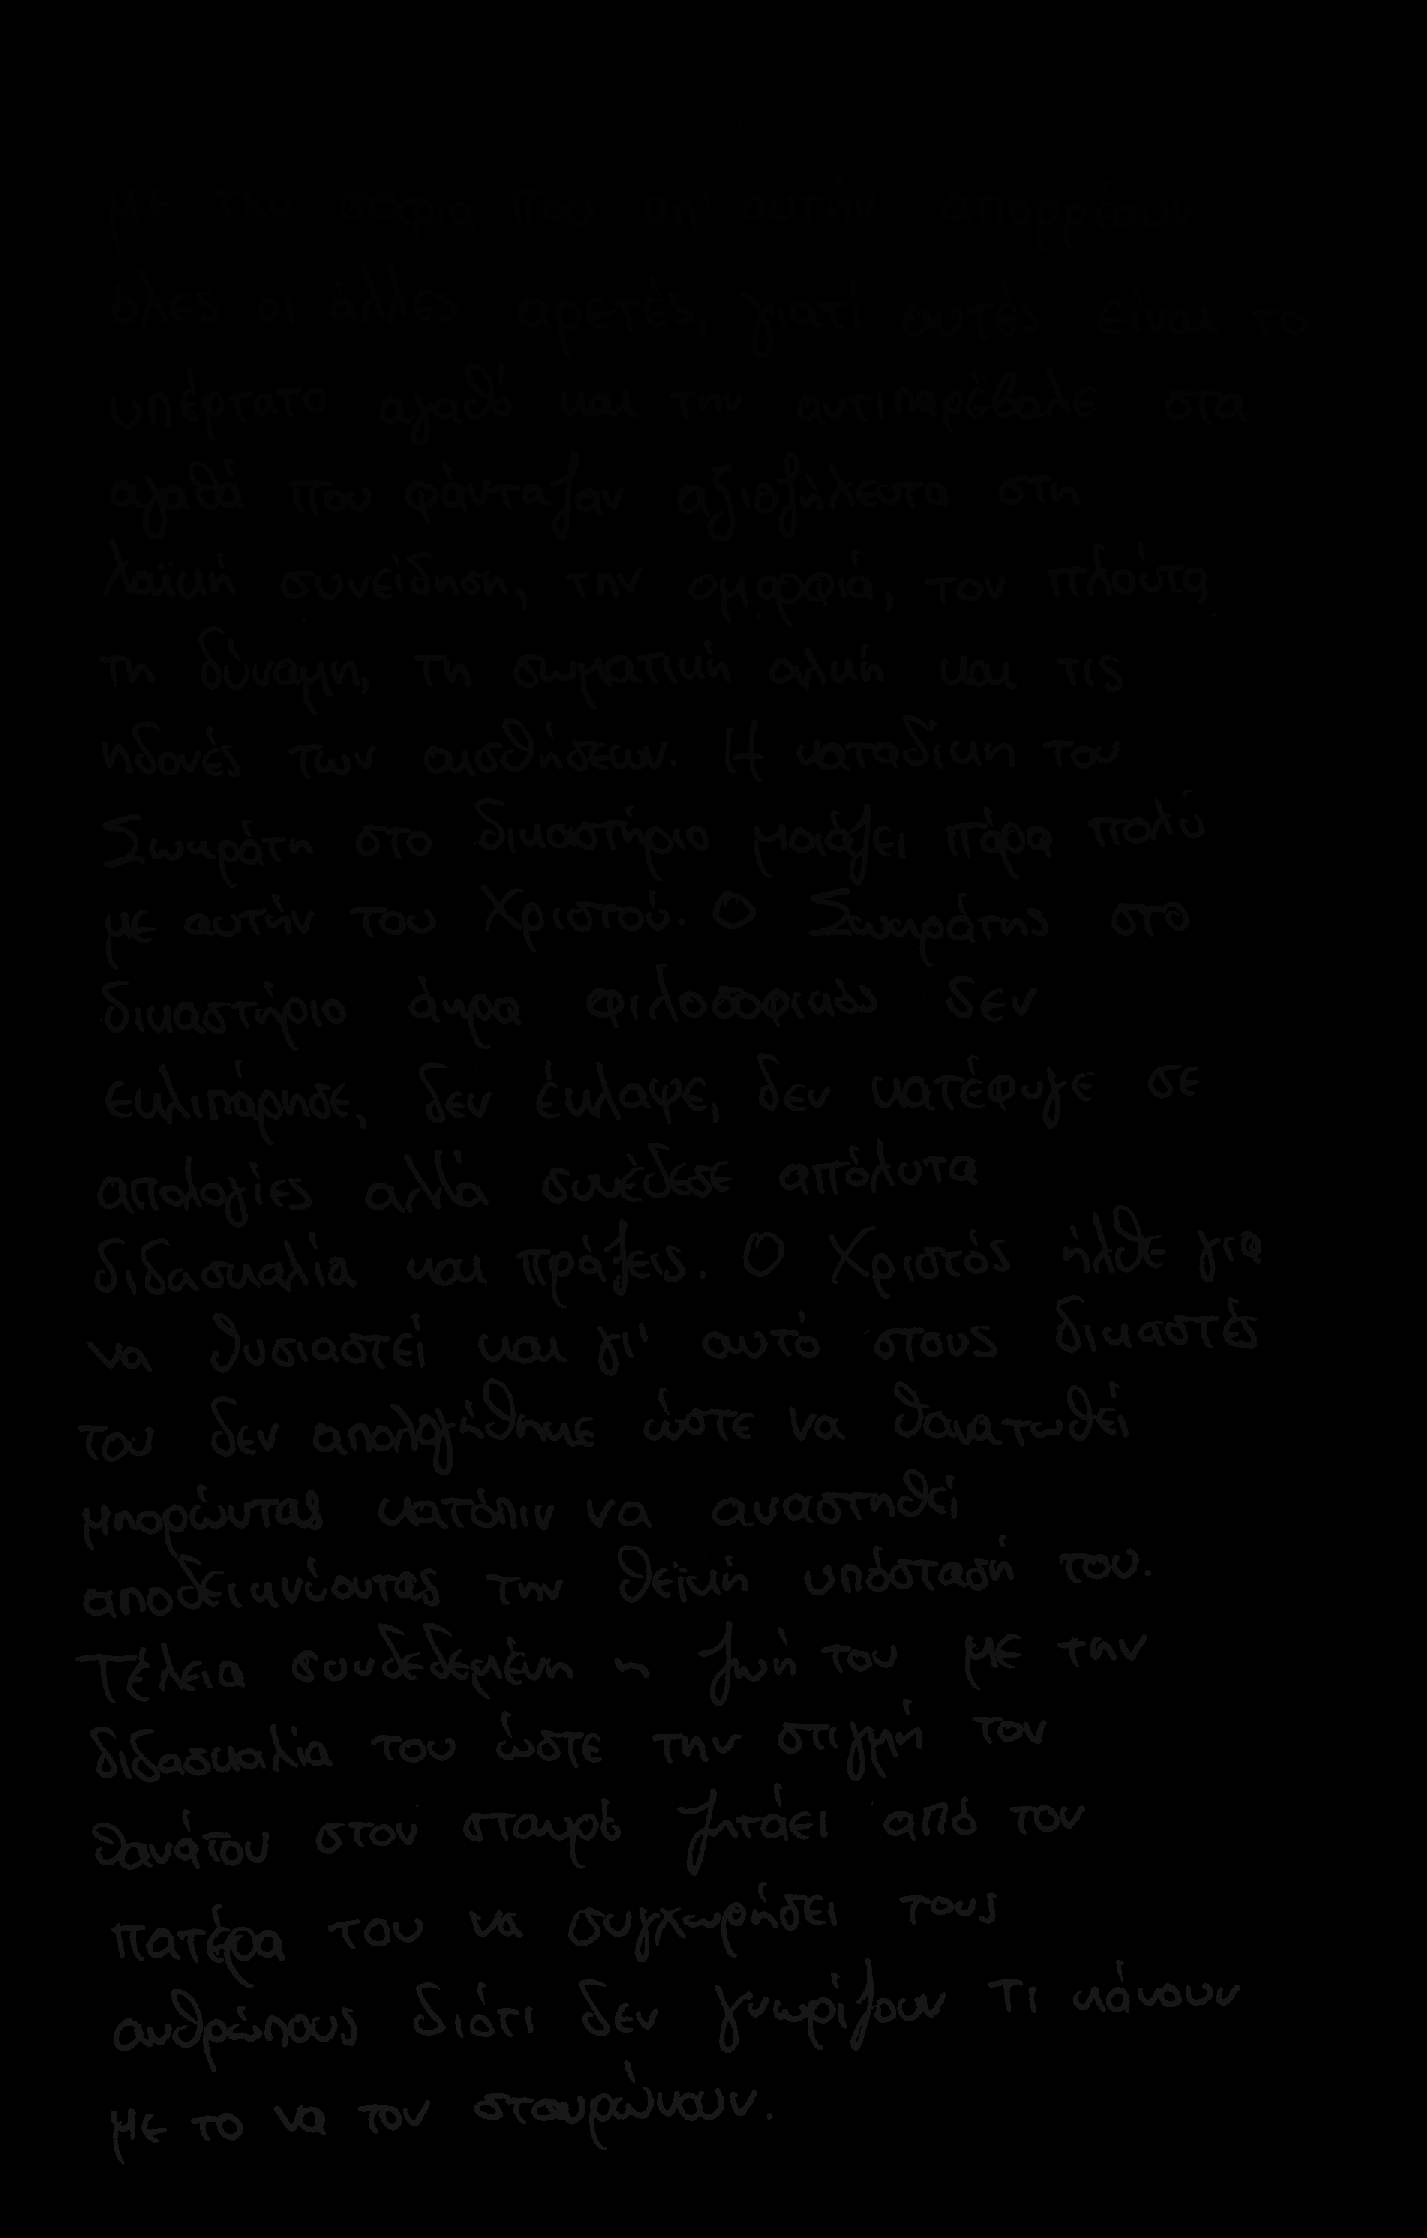 Ο Σωκράτης δίδαξε ότι η αρετή ταυτίζεται
με την σοφία που απ' αυτήν απορρέουν
όλες οι άλλες αρετές, γιατί αυτές είναι το
υπέρτατο αγαθό και την αντιπαρέβαλε στα
αγαθά που φάνταζαν αξιοζήλευτα στη
λαϊκή συνείδηση, την ομορφιά, τον πλούτο,
τη δύναμη, τη σωματική αλκή και τις
ηδονές των αισθήσεων. Η καταδίκη του
Σωκράτη στο δικαστήριο μοιάζει πάρα πολύ
με αυτήν του Χριστού. Ο Σωκράτης στο
δικαστήριο άκρα φιλοσοφικός δεν
εκλιπάρησε, δεν έκλαψε, δεν κατέφυγε σε
απολογίες αλλά συνέδεσε απόλυτα
διδασκαλία και πράξεις. Ο Χριστός ήλθε για
να θυσιαστεί και γι' αυτό στους δικαστές
του δεν απολογήθηκε ώστε να θανατωθεί
μπορώντας κατόπιν να αναστηθεί
αποδεικνύοντας την θεϊκή υπόστασή του.
Τέλεια συνδεδεμένη η ζωή του με την
διδασκαλία του ώστε την στιγμή του
θανάτου στον σταυρό ζητάει από τον
πατέρα του να συγχωρήσει τους
ανθρώπους διότι δεν γνωρίζουν τι κάνουν
με το να τον σταυρώνουν.